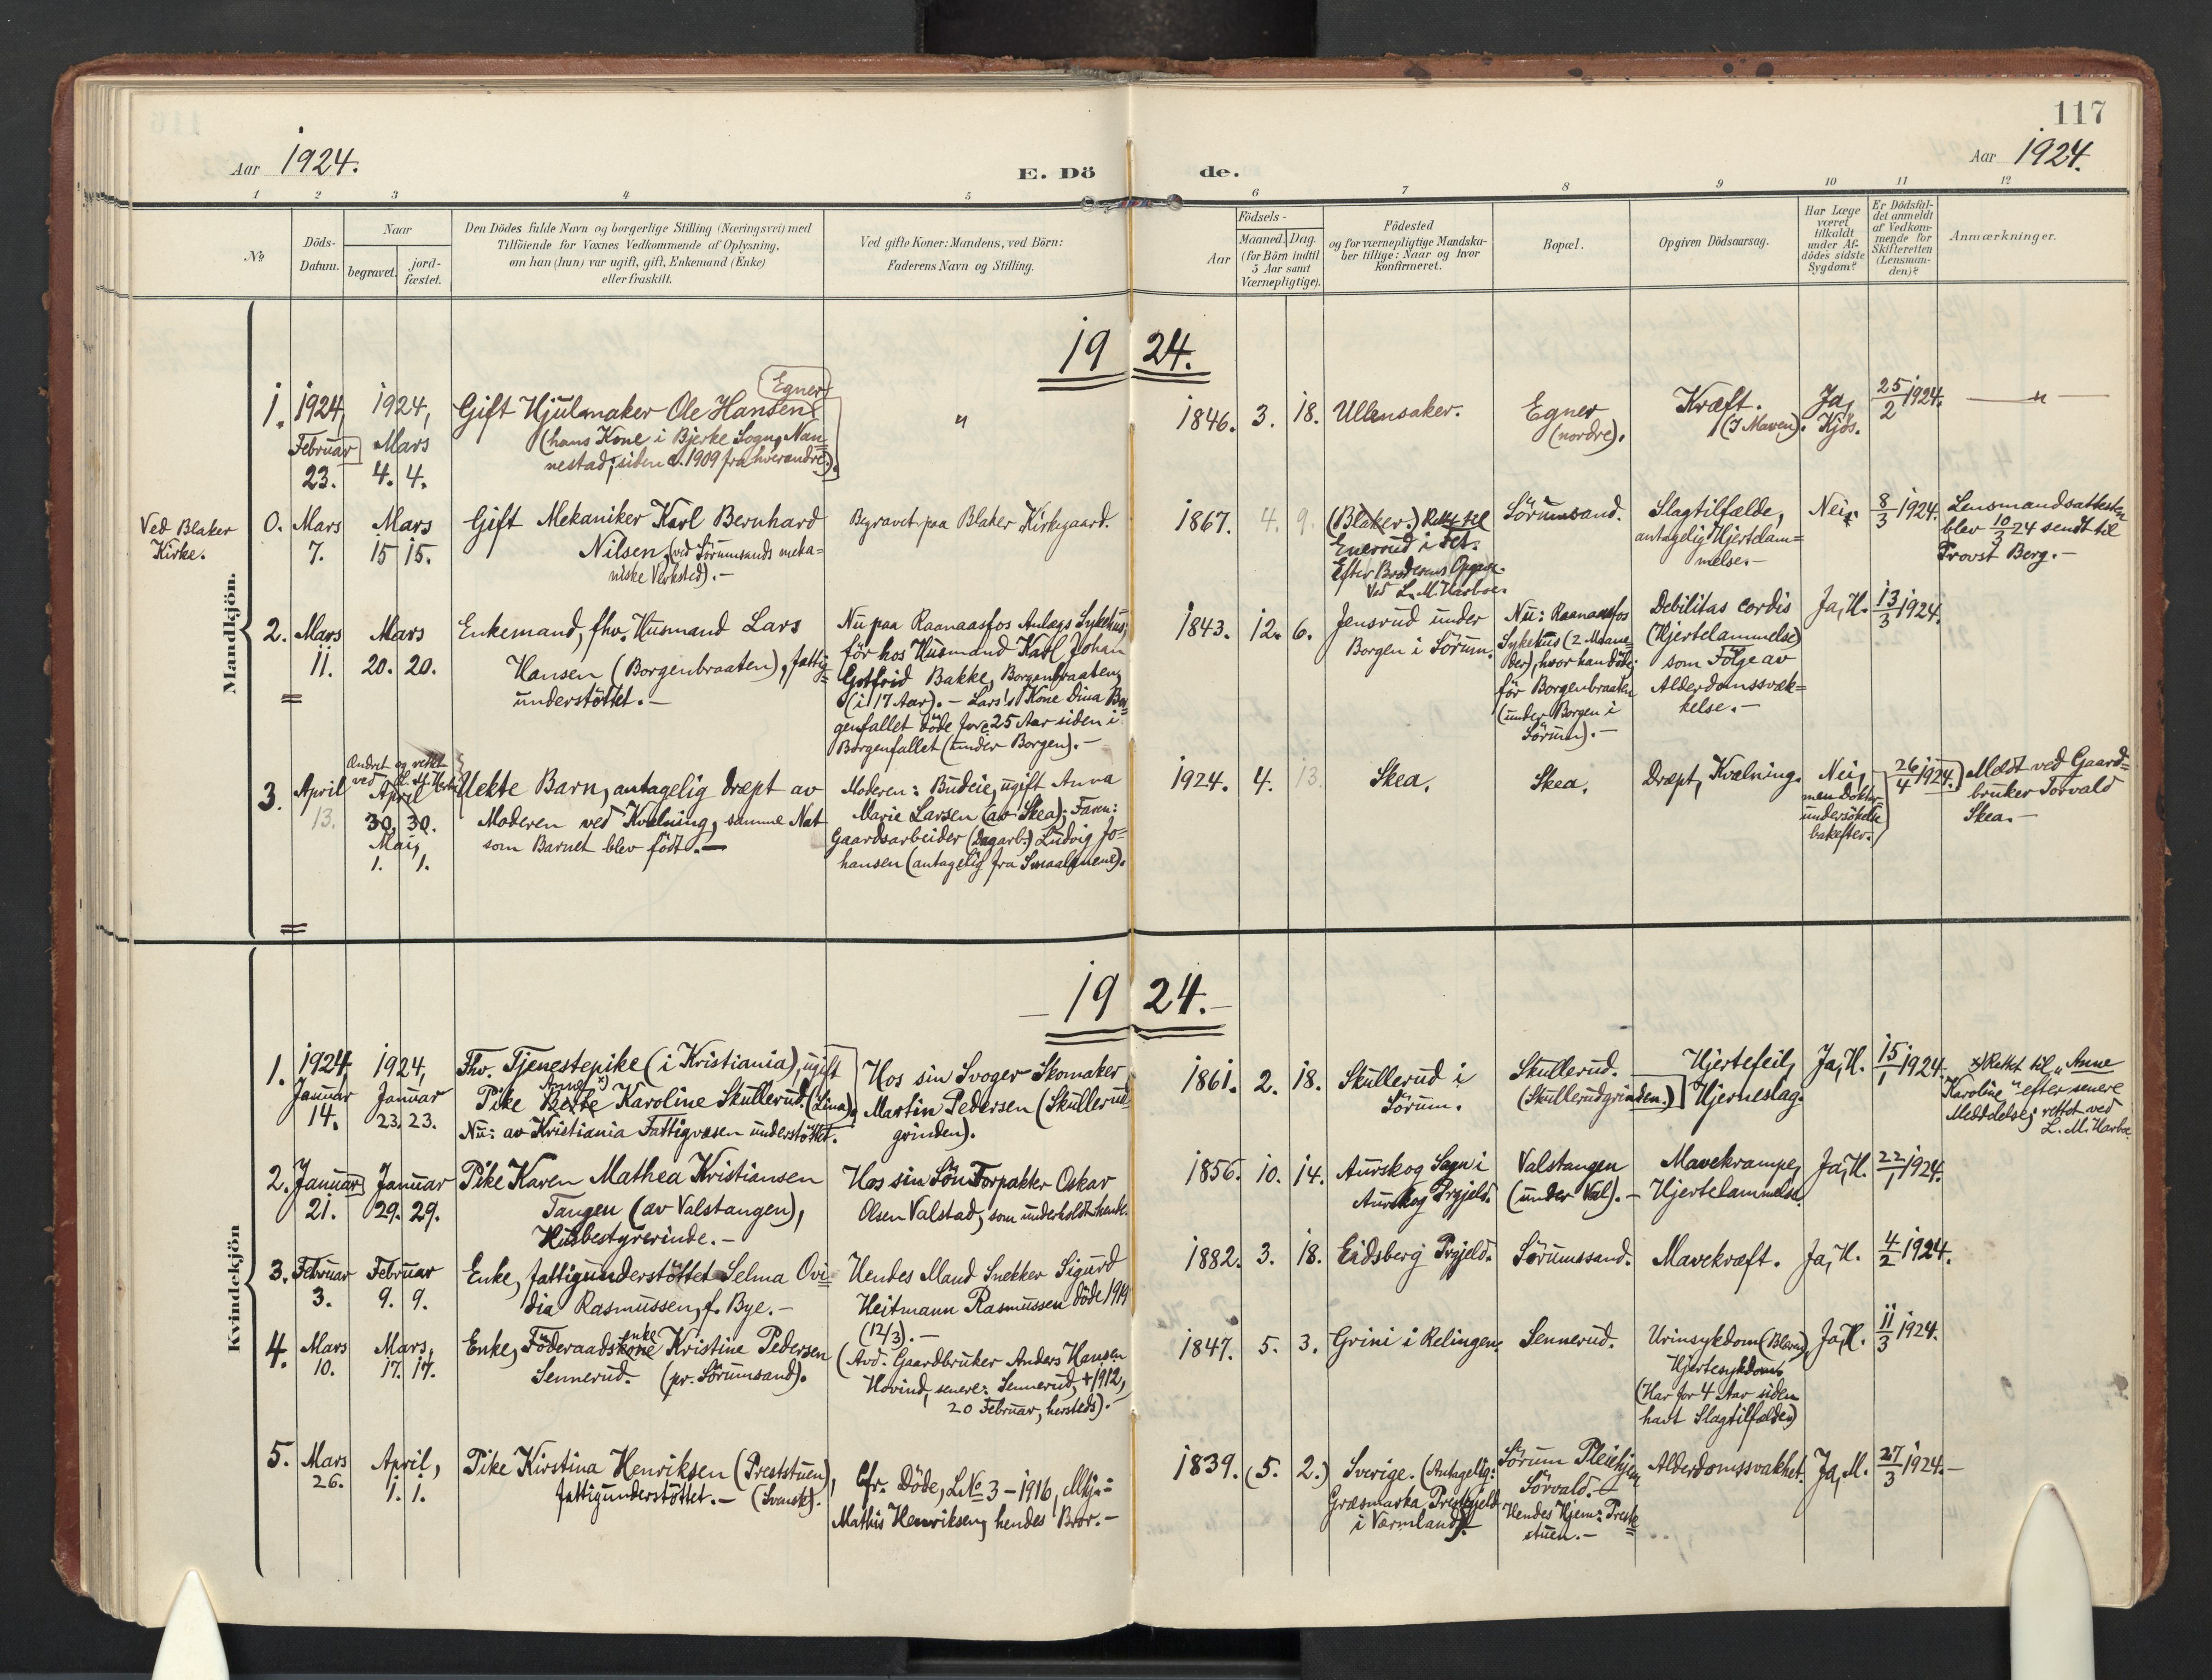 117
Aar 1924.
E. Dö de.
Aar 1924.
1 2 3 4 5 6 7 8 9 10 11 12
No
Döds-
Datum.
Naar
begravet.
jord-
fæstet.
Den Dödes fulde Navn og borgerlige Stilling (Næringsvei) med
Tilföiende for Voxnes Vedkommende af Oplysning,
om han (hun) var ugift, gift, Enkemand (Enke)
eller fraskilt.
Ved gifte Koner: Mandens, ved Börn:
Faderens Navn og Stilling.
Födsels-
Aar
Maaned. Dag.
(for Börn indtil
5 Aar samt
Værnepligtige).
Födested
og for værnepligtige Mandska-
ber tillige: Naar og hvor
konfirmeret.
Bopæl.
Opgiven Dödsaarsag.
Har Læge
været
tilkaldt
under Af-
dödes sidste
Sygdom?
Er Dödsfal-
det anmeldt
af Vedkom-
mende for
Skifteretten
(Lensman-
den)?
Anmærkninger.
Mandkjön.
1924.
1.
1924,
Februar
23.
1924,
Mars
4. 4.
Egner
Gift Hjulmaker Ole Hansen
(hans Kone i Bjerke Sogn, Nan=
nestad; siden 1909 fra hverandre).
"
1846. 3. 18.
Ullensaker.
Egner
(nordre).
Kræft.
(I Maven).
Ja,
Kjos.
25/2 1924.
— " —
Ved Blaker
Kirke.
0.
Mars
7.
Mars
15 15.
Gift Mekaniker Karl Bernhard
Nilsen, (ved Sörumsands meka=
niske Verksted). –
Begravet paa Blaker Kirkegaard.
1867. 4. 9.
(Blaker.) Rettet til
Enerud i Fet.
Efter Broderens Opgave.
Ved L. M. Harboe.
Sörumsand.
Slagtilfælde,
antagelig Hjertelam=
melse. –
Nei.
8/3 1924.
Lensmandsattesten
blev 10/3 24 sendt til
Provst Berg. –
2.
Mars
11.
Mars
20. 20.
Enkemand, fhv. Husmand Lars
Hansen (Borgenbraaten), fattig=
understöttet. –
Nu paa Raanaasfos Anlægs Sykehus,
för hos Husmand Karl Johan
Gotfrid Bakke, Borgenbraaten,
(i 17 Aar). – Lars's Kone Dina Bor=
genfallet döde for c. 25 Aar siden i
Borgenfallet (under Borgen). –
1843. 12. 6.
Jensrud under
Borgen i Sörum.
Nu: Raanaasfos
Sykehus (2 Maane=
der), hvor han döde;
för Borgenbraaten
(under Borgen i
Sörum). –
Debilitas cordis
(Hjertelammelse)
som Fölge av
Alderdomssvæk=
kelse. –
Ja, H.
13/3 1924.
3.
April
13.
Ændret og rettet
ved L. M. Harboe
April
30, 30.
Mai,
1. 1.
Uekte Barn, antagelig dræpt av
Moderen ved Kvælning, samme Nat
som Barnet blev födt. –
Moderen: Budeie, ugift Anna
Marie Larsen (av Skea); Faren:
Gaardsarbeider (Dagarb.) Ludvig Jo=
hansen (antagelig fra Smaalenene).
1924. 4. 13.
Skea.
Skea.
Dræpt, Kvælning.
Nei,
men Doktor
undersökelse
bakefter.
26/4 1924.
Meldt ved Gaard=
bruker Torvald
Skea. –
Kvindekjön
– 1924. –
1.
1924,
Januar
14.
1924,
Januar
23. 23.
Fhv. Tjenestepike (i Kristiania), ugift
Anne x)
Pike Berte Karoline Skullerud. (Lina),
Nu: av Kristiania Fattigvæsen understöttet.
Hos sin Svoger Skomaker
Martin Pedersen (Skullerud=
grinden).
1861. 2. 18.
Skullerud i
Sörum.
Skullerud.
(Skullerudgrinden.)
Hjertefeil,
Hjerneslag.
Ja, H.
15/1 1924.
x) Rettet til "Anne
Karoline" efter senere
Meddelse; rettet ved
L. M. Harboe.
2.
Januar
21.
Januar
29. 29.
Pike Karen Mathea Kristiansen
Tangen (av Valstangen),
Husbestyrerinde. –
Hos sin Sön Forpakter Oskar
Olsen Valstad, som underholdt hende.
1856. 10. 14.
Aurskog Sogn i
Aurskog Prgjeld.
Valstangen
(under Val). –
Mavekrampe,
Hjertelammelse.
Ja, H.
22/1 1924.
3.
Februar
3.
Februar
9. 9.
Enke, fattigunderstöttet Selma Ovi=
dia Rasmussen, f. Bye. –
Hendes Mand Snekker Sigurd
Heitmann Rasmussen döde 1919
(12/3). –
1882. 3. 18.
Eidsberg Prgjeld.
Sörumsand.
Mavekræft.
Ja, H.
4/2 1924.
4.
Mars
10.
Mars,
17. 17.
enke
Enke, Föderaadskone Kristine Pedersen
Sennerud. (pr. Sörumsand).
(Avd. Gaardbruker Anders Hansen
Hovind, senere: Sennerud, +1912,
20 Februar, hersteds). –
1847. 5. 3.
Grini i Relingen.
Sennerud.
Urinsykdom (Blæren)
Hjertesykdom
(Har for 4 Aar siden
havt Slagtilfælde)
Ja, H.
11/3 1924.
5.
Mars
26.
April,
1. 1.
Pike Kirstina Henriksen (Preststuen),
fattigunderstöttet. – (Svensk).
Cfr. Döde, LNo 3 – 1916, Mkj.:
Mathis Henriksen, hendes Bror. –
1839. (5. 2.)
Sverige. (Antagelig:
Græsmarka Prestegjeld
i Værmland). –
Sörum Pleiehjem
Sörvald. –
Hendes Hjem: Prest=
stuen. –
Alderdomssvakhet.
Ja, M.
27/3 1924. –